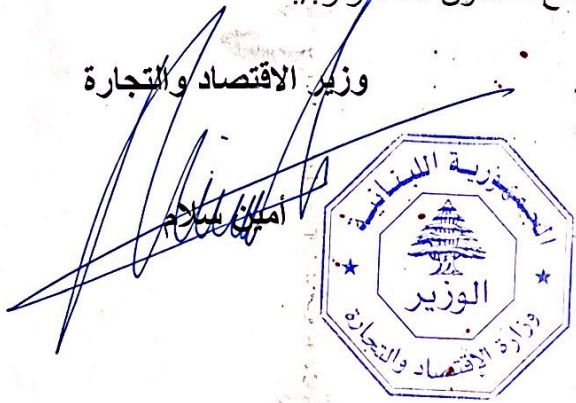 وزير الاقتصاد والتجارة
أمين سلام
الجمهورية اللبنانية
الوزير
وزارة الإقتصاد والتجارة